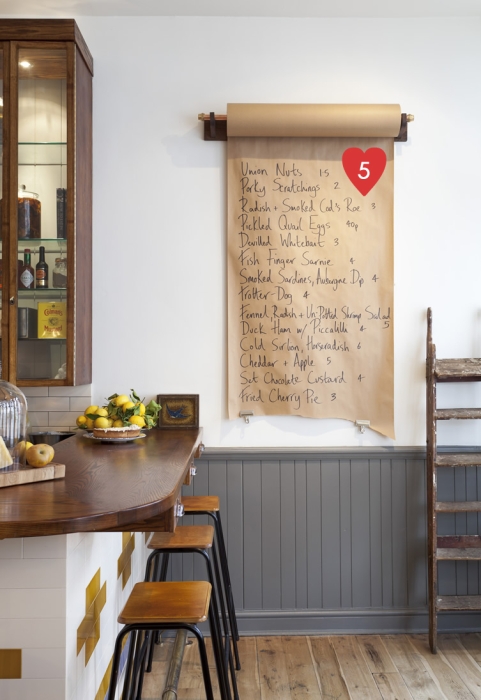 5
Union Nuts 1.5
Porky Scratchings 2
Radish + Smoked Cod's Roe 3
Pickled Quail Eggs 90p
Devilled Whitebait 3
Fish Finger Sarnie 4
Smoked Sardines, Aubergine Dip 4
Trotter-Dog 4
Fennel, Radish + Un-Potted Shrimp Salad 5
Duck Ham w/ Piccalilli 6
Cold Sirloin, Horseradish 6
Cheddar + Apple 5
Set Chocolate Custard 4
Fried Cherry Pie 3